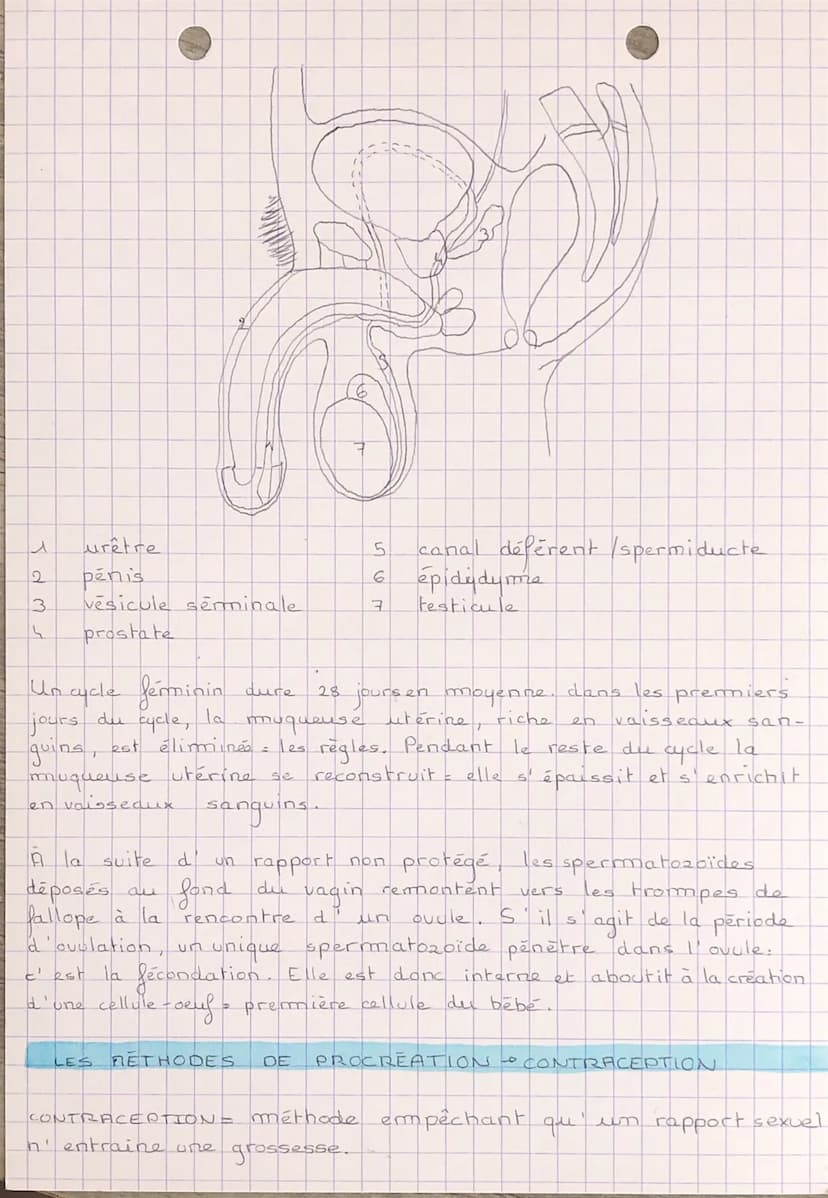 2
3
4
1
5
6
7
1 urêtre
2 pénis
3 vésicule séminale
4 prostate
5 canal déférent /spermiducte
6 épididyme
7 testicule
Un cycle féminin dure 28 jours en moyenne. dans les premiers
jours du cycle, la muqueuse utérine, riche en vaisseaux san-
guins, est éliminée = les règles. Pendant le reste du cycle la
muqueuse utérine se reconstruit = elle s'épaissit et s'enrichit
en vaisseaux sanguins.
À la suite d'un rapport non protégé, les spermatozoïdes
déposés au fond du vagin remontent vers les trompes de
fallope à la rencontre d'un ovule. S'il s'agit de la période
d'ovulation, un unique spermatozoïde pénètre dans l'ovule:
c'est la fécondation. Elle est donc interne et aboutit à la création
d'une cellule-oeuf = première cellule du bébé.
LES MÉTHODES DE PROCRÉATION → CONTRACEPTION
CONTRACEPTION = méthode empêchant qu'un rapport sexuel
n'entraine une grossesse.